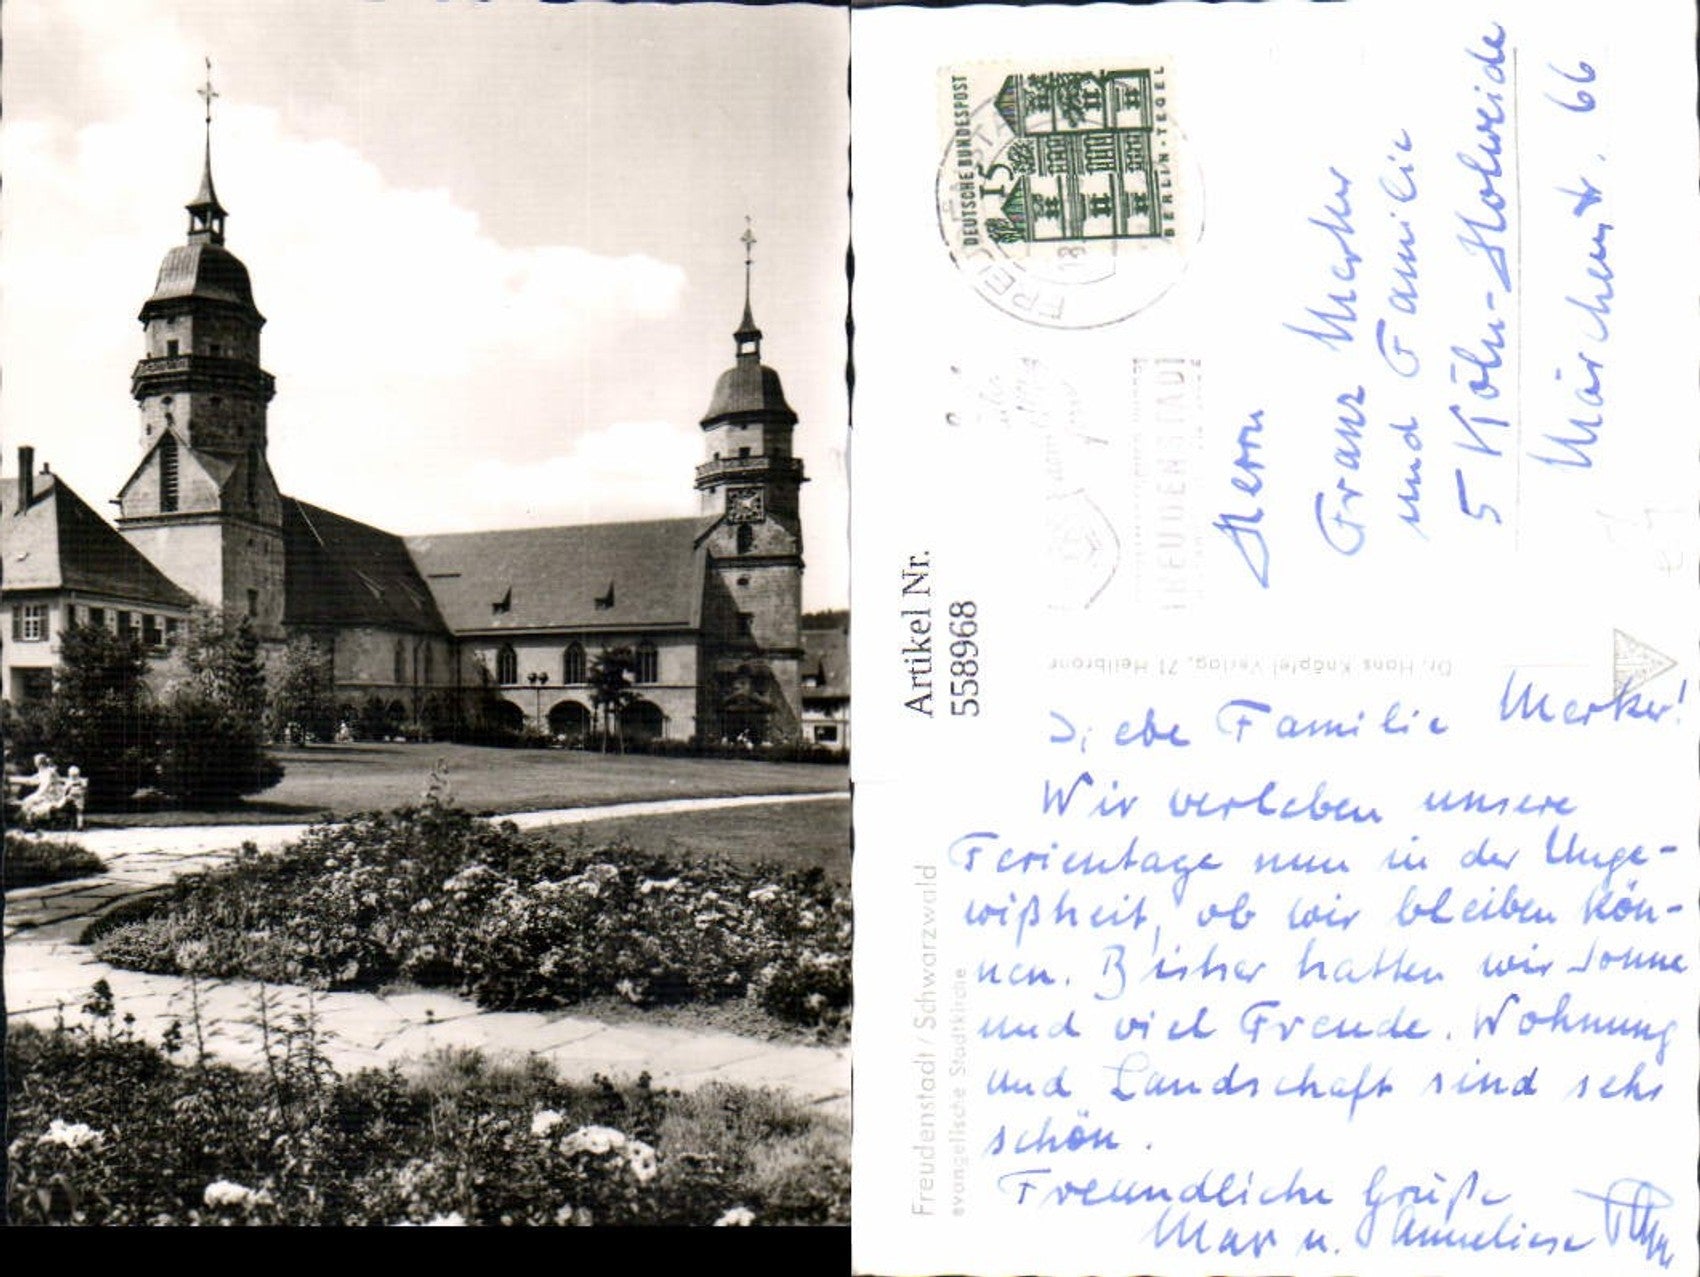 DEUTSCHE BUNDESPOST
15
BERLIN-TEGEL
FREUDENSTADT
Artikel Nr.
558968
Herrn
Franz Merker
und Familie
5 Köln-Holweide
Märchenstr. 66
Dr. Hans Knöpfel Verlag, 71 Heilbronn
Freudenstadt / Schwarzwald
evangelische Stadtkirche
Liebe Familie Merker!
Wir verleben unsere
Ferientage nun in der Unge-
wißheit, ob wir bleiben kön-
nen. Bisher hatten wir Sonne
und viel Freude. Wohnung
und Landschaft sind sehr
schön.
Freundliche Grüße
Max u. Anneliese